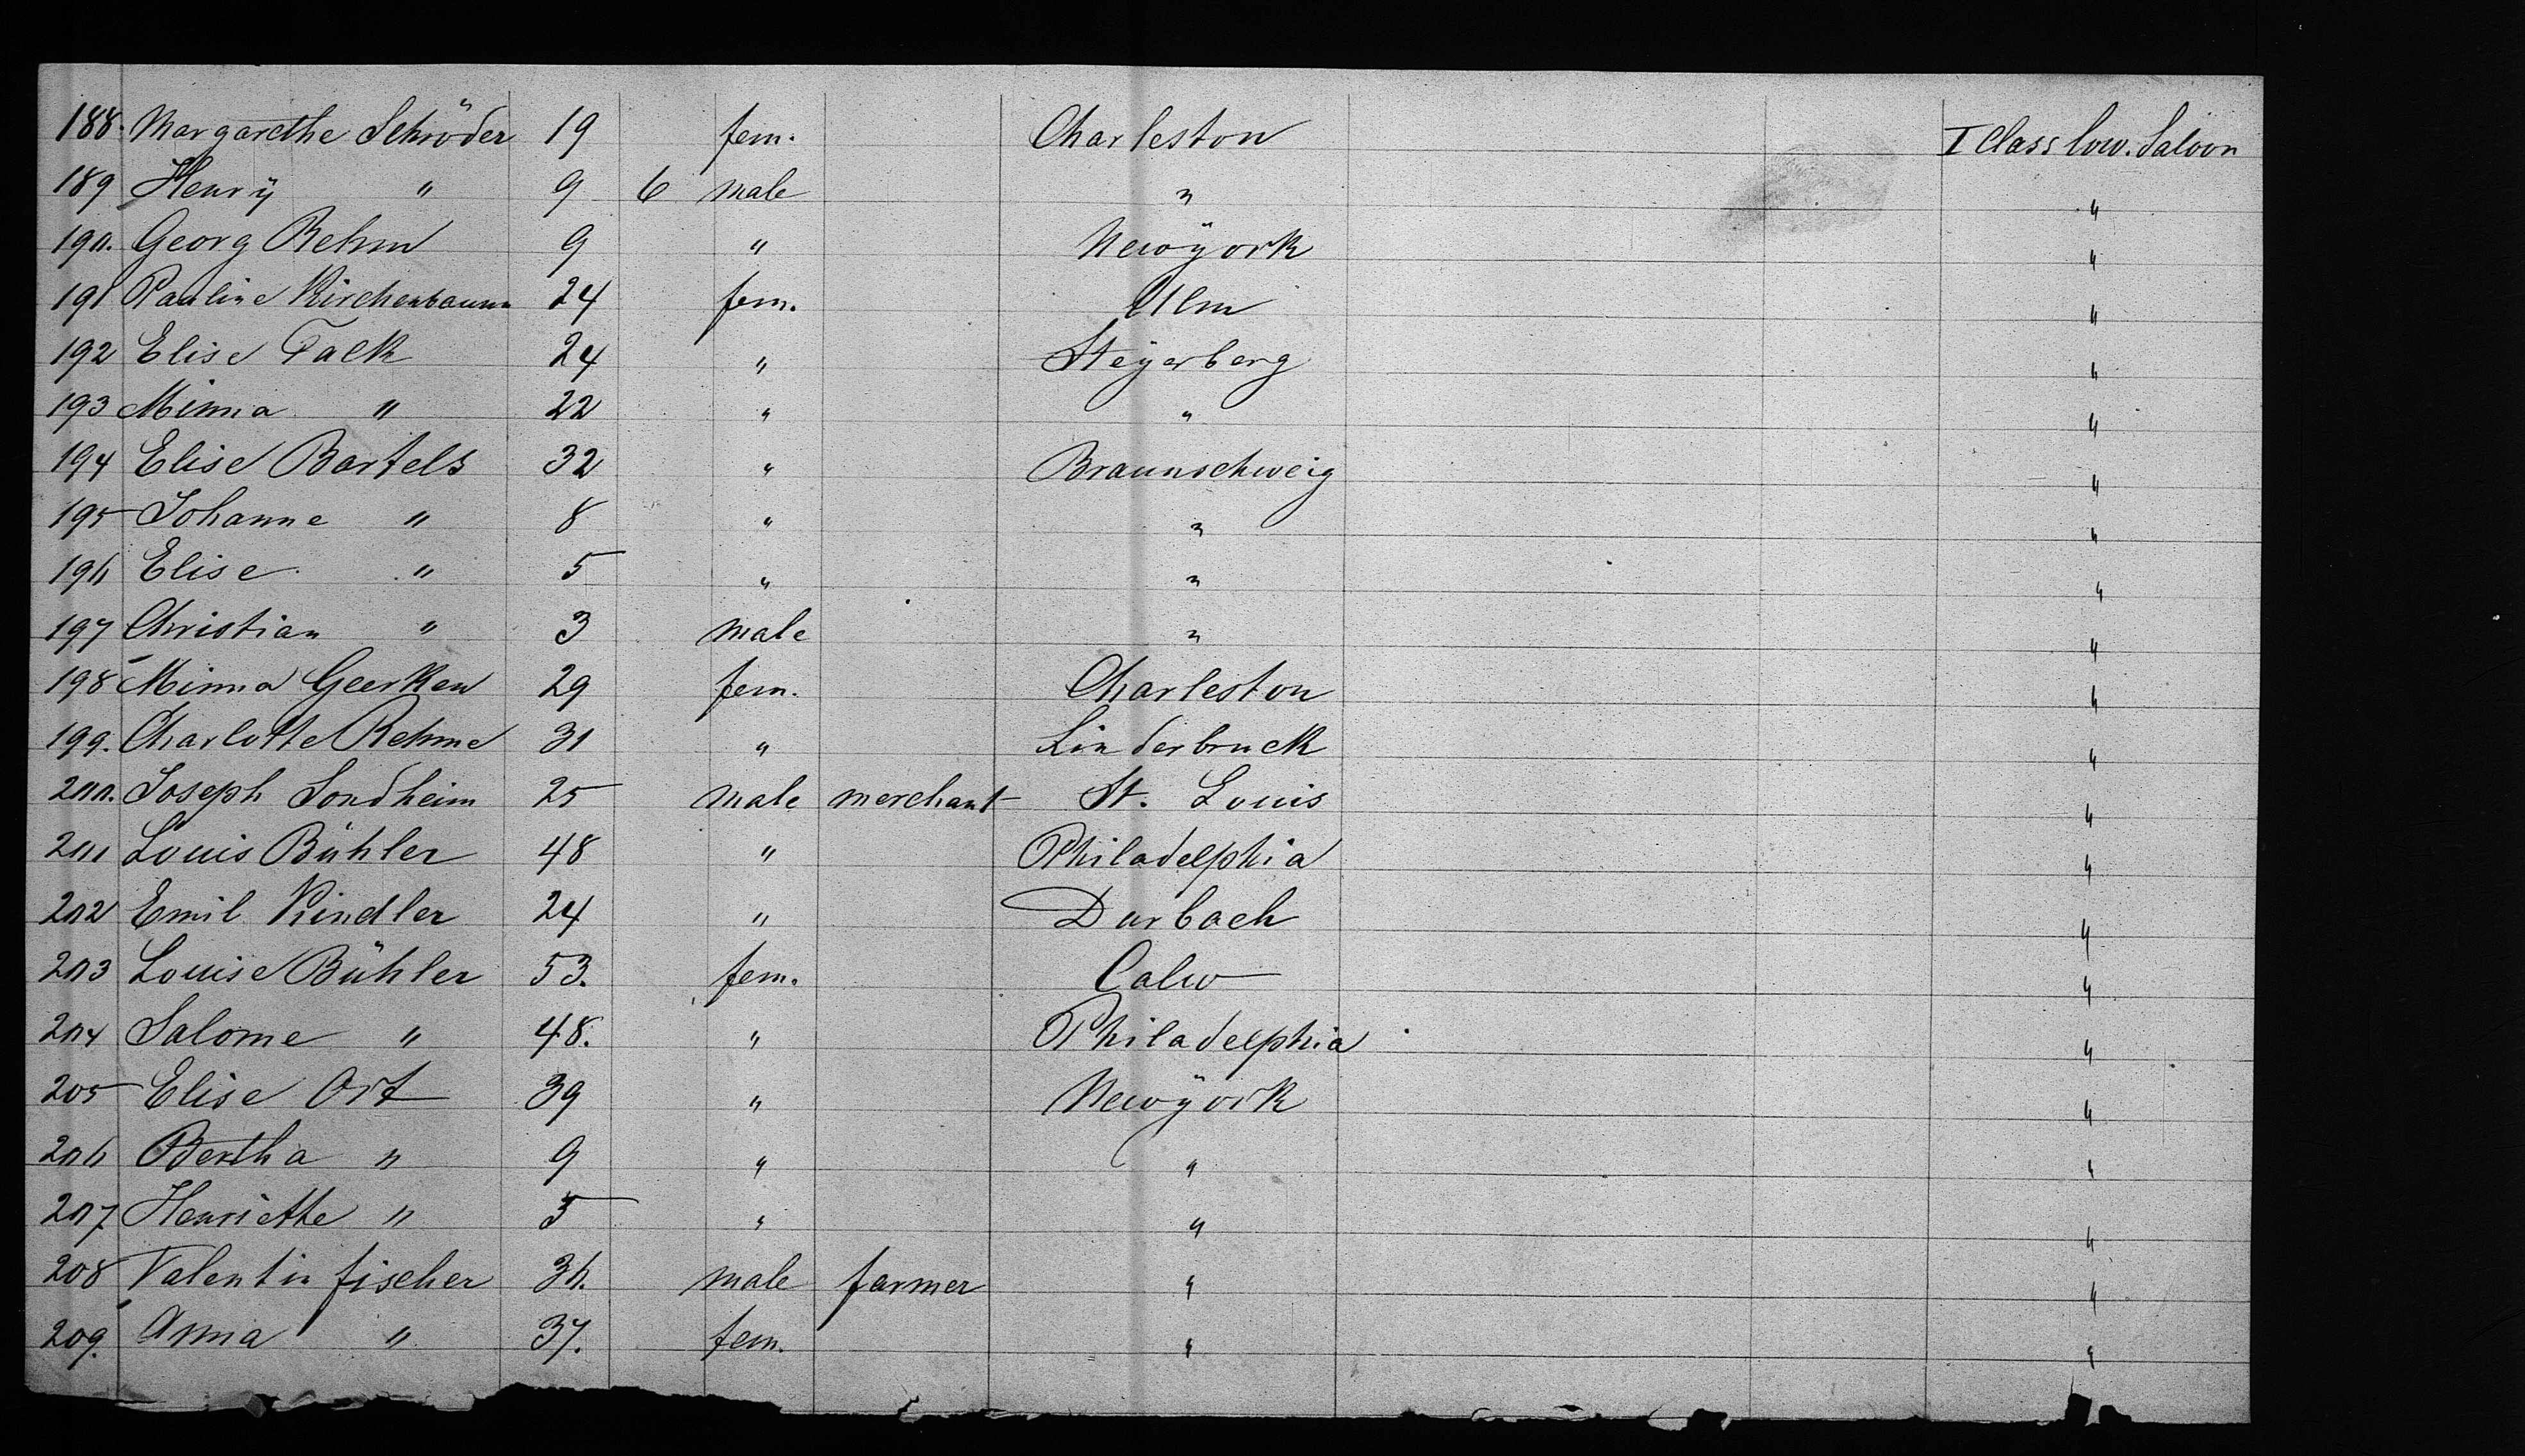 188. Margarethe Schröder 19 fem. Charleston I Class low. Saloon
189 Henrÿ " 9 6 male " "
190. Georg Rehm 9 " Newÿork "
191 Pauline Kirchenbaum 24 fem. Ulm "
192 Elise Tack 24 " Steÿerberg "
193 Minna " 22 " " "
194 Elise Bartels 32 " Braunschweig "
195 Johanne " 8 " " "
196 Elise " 5 " " "
197 Christian " 3 male " "
198 Minna Geerken 29 fem. Charleston "
199. Charlotte Rehme 31 " Linderbruck "
200. Joseph Sondheim 25 male merchant St. Louis "
201 Louis Bühler 48 " Philadelphia "
202 Emil Kindler 24 " Durbach "
203 Louise Bühler 53. fem. Calw "
204 Salome " 48. " Philadelphia "
205 Elise Ort 39 " Newÿork "
206 Bertha " 9 " " "
207 Henriette " 5 " " "
208 Valentin fischer 36. male farmer " "
209. Anna " 37. fem. " "